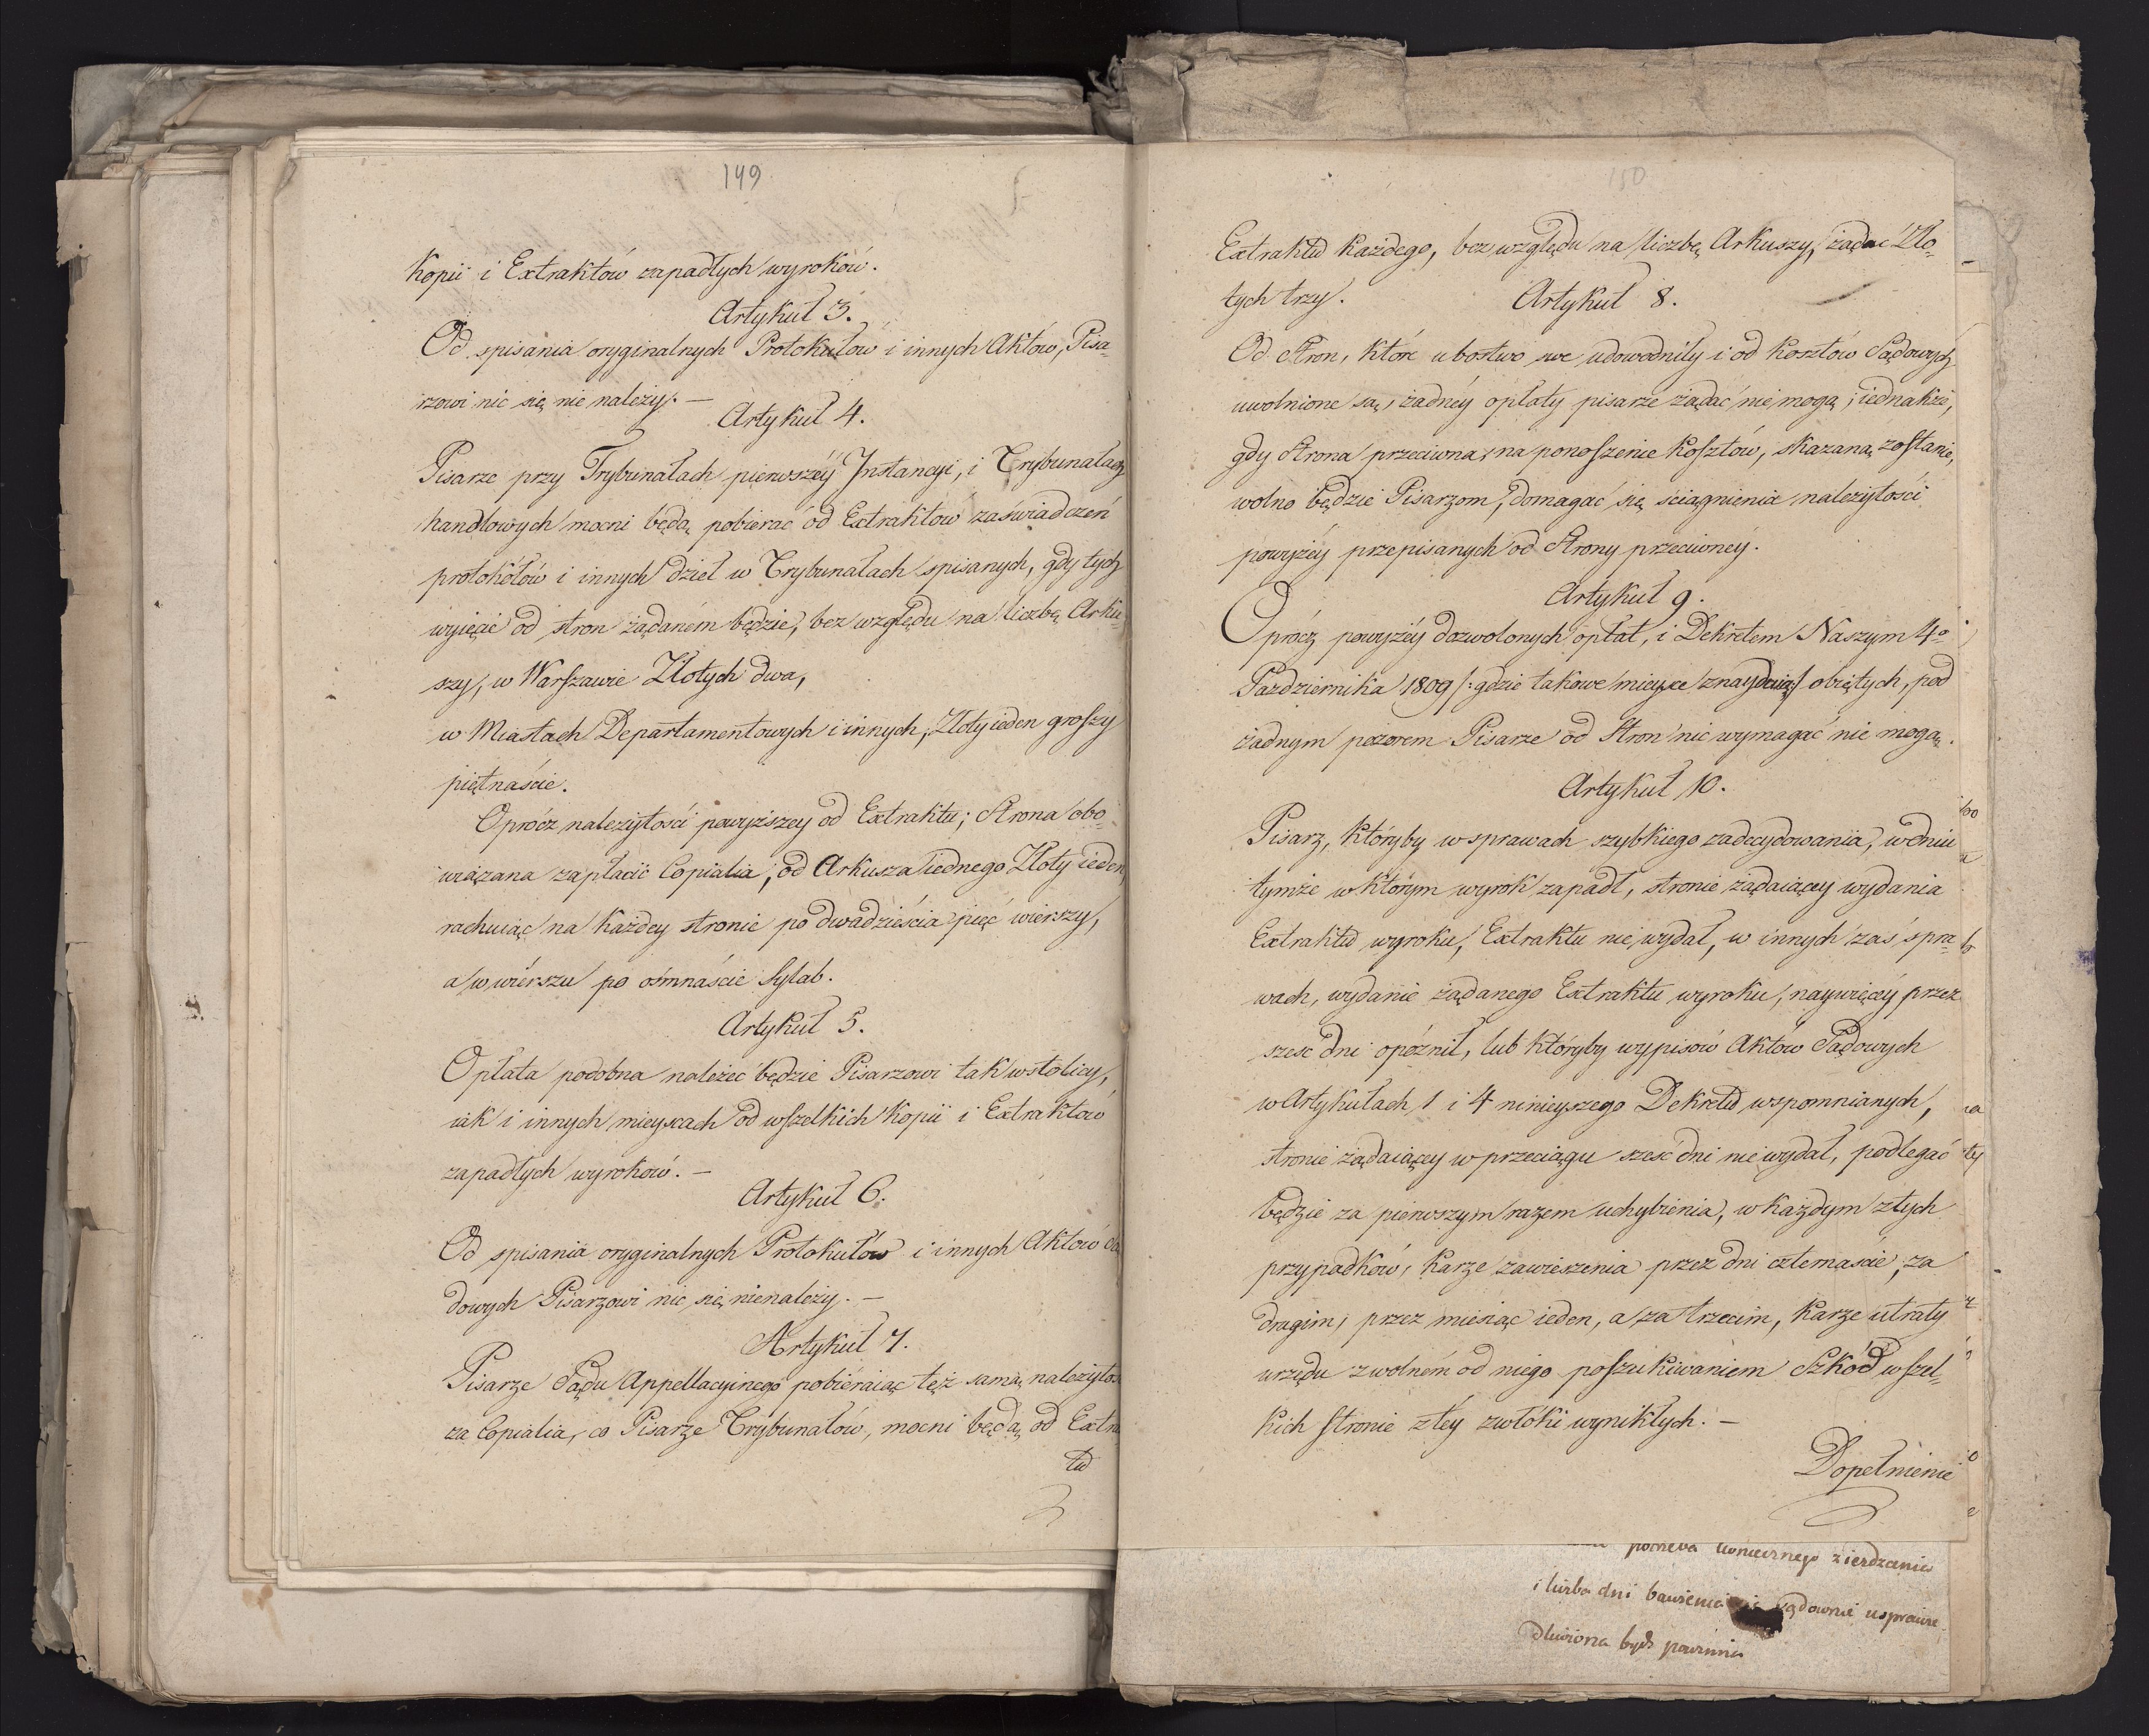 149
Kopii i Extraktów zapadłych wyroków.
Artykuł 3.
Od spisania oryginalnych Protokułów i innych Aktów, Pisa-
rzowi nic się nie należy. —
Artykuł 4.
Pisarze przy Trybunałach pierwszéy Instancyi, i Trybunałach
handlowych mocni będą pobierać od Extraktów zaświadczeń
protokółów i innych dzieł w Trybunałach spisanych, gdy tych
wyięcie od stron żądaném będzie, bez względu na liczbę Arku-
szy, w Warszawie Złotych dwa,
w Miastach Departamentowych i innych, Złoty ieden groszy
piętnaście.
Oprócz należytości powyższey od Extraktu; Strona obo-
wiązana zapłacić Copialia, od Arkusza iednego Złoty ieden,
rachuiąc na każdey stronie po dwadzieścia pięć wierszy,
a w wierszu po ośmnaście sylab.
Artykuł 5.
Opłata podobna należeć będzie Pisarzowi tak w stolicy,
iak i innych mieyscach od wszelkich Kopii i Extraktów
zapadłych wyroków. —
Artykuł 6.
Od spisania oryginalnych Protokułów i innych Aktów Są
dowych Pisarzowi nic się nienależy. —
Artykuł 7.
Pisarze Sądu Appellacyinego pobiéraiąc też samą należytość
za Copialia, co Pisarze Trybunałów, mocni będą od Extra
ktu
150
Extraktu każdego, bez względu na liczbę Arkuszy, żądać Zło-
tych trzy.
Artykuł 8.
Od Stron, które ubostwo swe udowodniły i od kosztów Sądowych
uwolnione są, żadnéy opłaty pisarze żądać nie mogą; iednakże,
gdy Strona przeciwna, na ponoszenie kosztów, skazaną zostanie,
wolno będzie Pisarzom, domagać się sciągnienia należytości
powyżéy przepisanych od Strony przeciwnéy.
Artykuł 9.
Oprócz powyżéy dozwolonych opłat, i Dekretem Naszym 4o
Października 1809 /: gdzie takowe mieysce znayduią :/ obiętych, pod
żadnym pozorem Pisarze od Stron nic wymagać nie mogą.
Artykuł 10.
Pisarz, któryby w sprawach szybkiego zadecydowania, w dniu
tymże w którym wyrok zapadł, stronie żądaiącey wydania
Extraktu wyroku, Extraktu nie wydał, w innych zaś spra-
wach, wydanie żądanego Extraktu wyroku, naywięcéy przez
sześć dni opóźnił, lub któryby wypisów Aktów Sądowych
w Artykułach 1 i 4 ninieyszego Dekretu wspomnianych,
stronie żądaiącey w przeciągu sześć dni nie wydał, podlegać
będzie za pierwszym razem uchybienia, w każdym z tych
przypadków, karze zawieszenia przez dni czternaście, za
drugim, przez miesiąc ieden, a za trzecim, karze utraty
urzędu z wolném od niego poszukiwaniem Szkód wszel-
kich stronie z téy zwłóki wynikłych. —
Dopełnienie
zierdzenia
i liczba dni bawienia sądownie usprawie
dliwiona bydź powinna